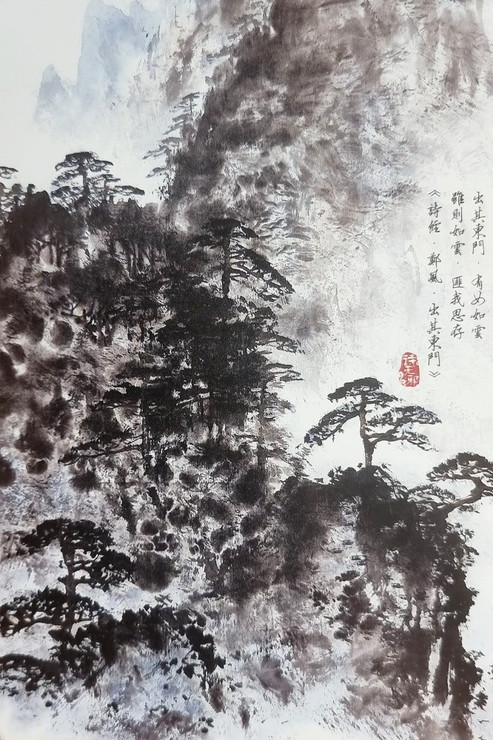 出其東門．有女如雲
雖則如雲　匪我思存
《詩經．鄭風．出其東門》